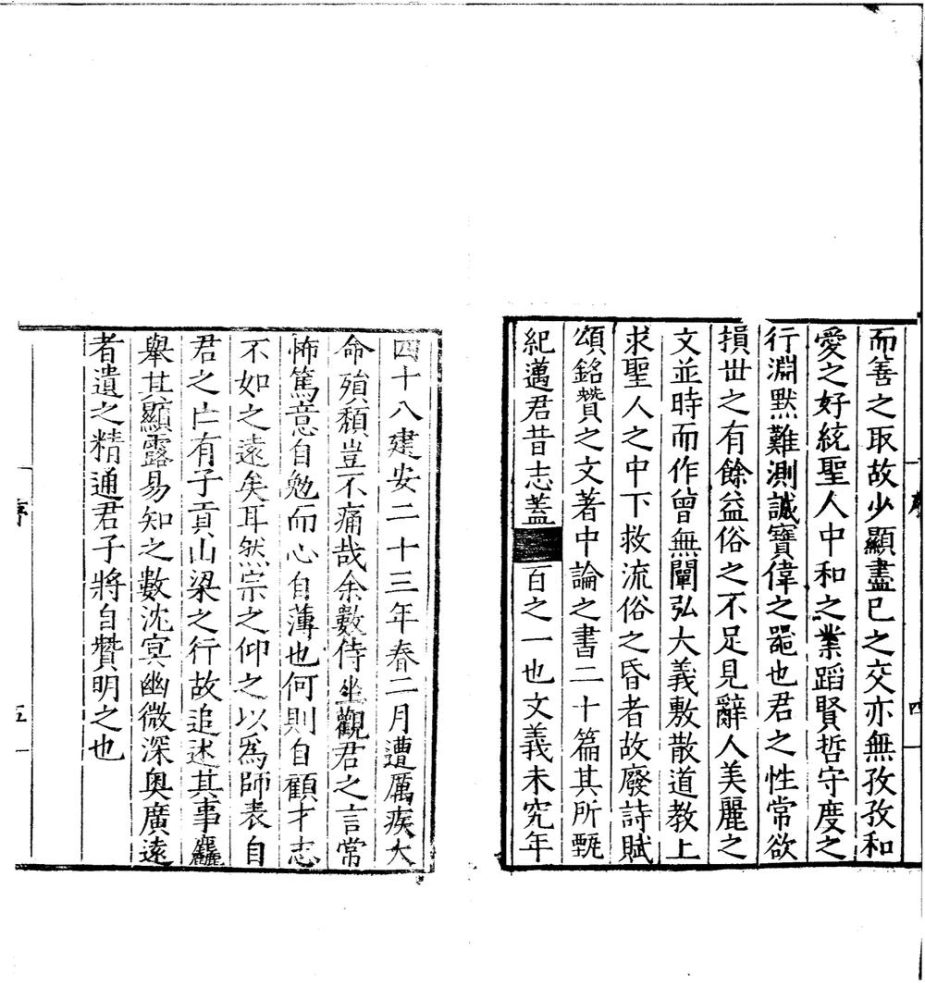 序
四
而善之取故少顯盡己之交亦無孜孜和
愛之好統聖人中和之業蹈賢哲守度之
行淵默難測誠寶偉之器也君之性常欲
損世之有餘益俗之不足見辭人美麗之
文並時而作曾無闡弘大義敷散道教上
求聖人之中下救流俗之昏者故廢詩賦
頌銘贊之文著中論之書二十篇其所甄
紀邁君昔志蓋百之一也文義未究年
四十八建安二十三年春二月遭厲疾大
命殞頹豈不痛哉余數侍坐觀君之言常
怖篤意自勉而心自薄也何則自顧才志
不如之遠矣耳然宗之仰之以為師表自
君之亡有子貢山梁之行故追述其事麤
舉其顯露易知之數沈冥幽微深奧廣遠
者遺之精通君子將自贊明之也
序
五